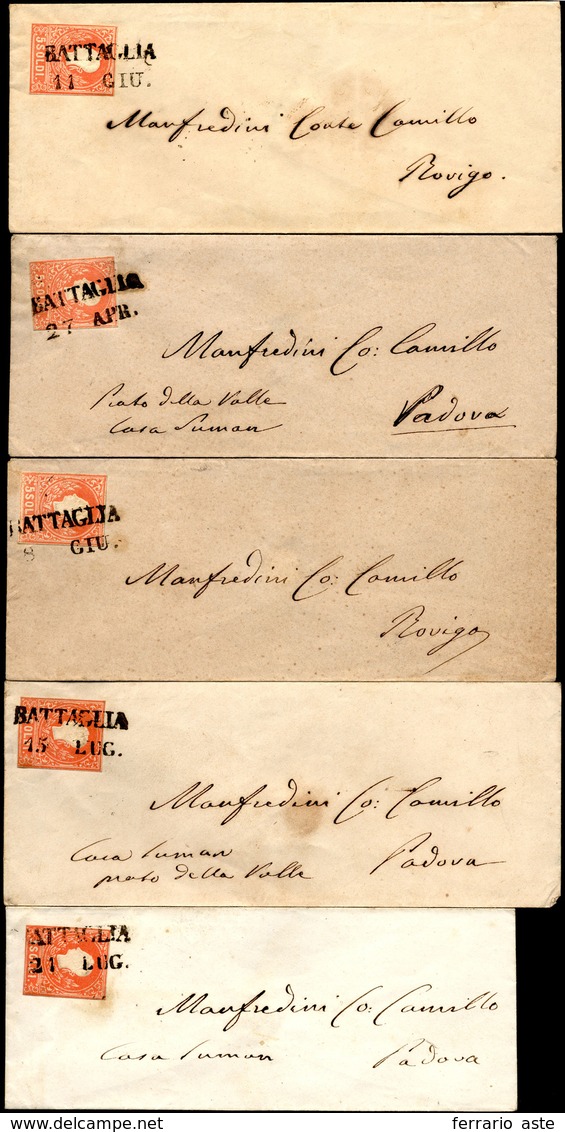 5 SOLDI
BATTAGLIA
11 GIU.
Manfredini Conte Camillo
Rovigo.
5 SOLDI
BATTAGLIA
27 APR.
Manfredini Co: Camillo
Prato della Valle
Casa Suman
Padova
5 SOLDI
BATTAGLIA
8 GIU.
Manfredini Co: Camillo
Rovigo
SOLDI
BATTAGLIA
15 LUG.
Manfredini Co: Camillo
Casa Suman
prato della Valle
Padova
ATTAGLIA
21 LUG.
Manfredini Co: Camillo
Casa Suman
Padova
ferrario aste